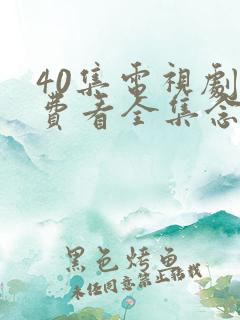 40集電視劇
費看全集念
黑色烤魚
未经同意禁止转载